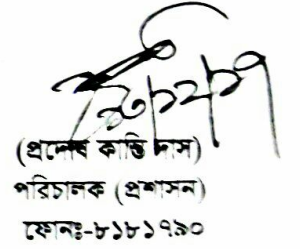 (প্রদোষ কান্তি দাস)
পরিচালক (প্রশাসন)
ফোনঃ-৮১৮১৭৯০